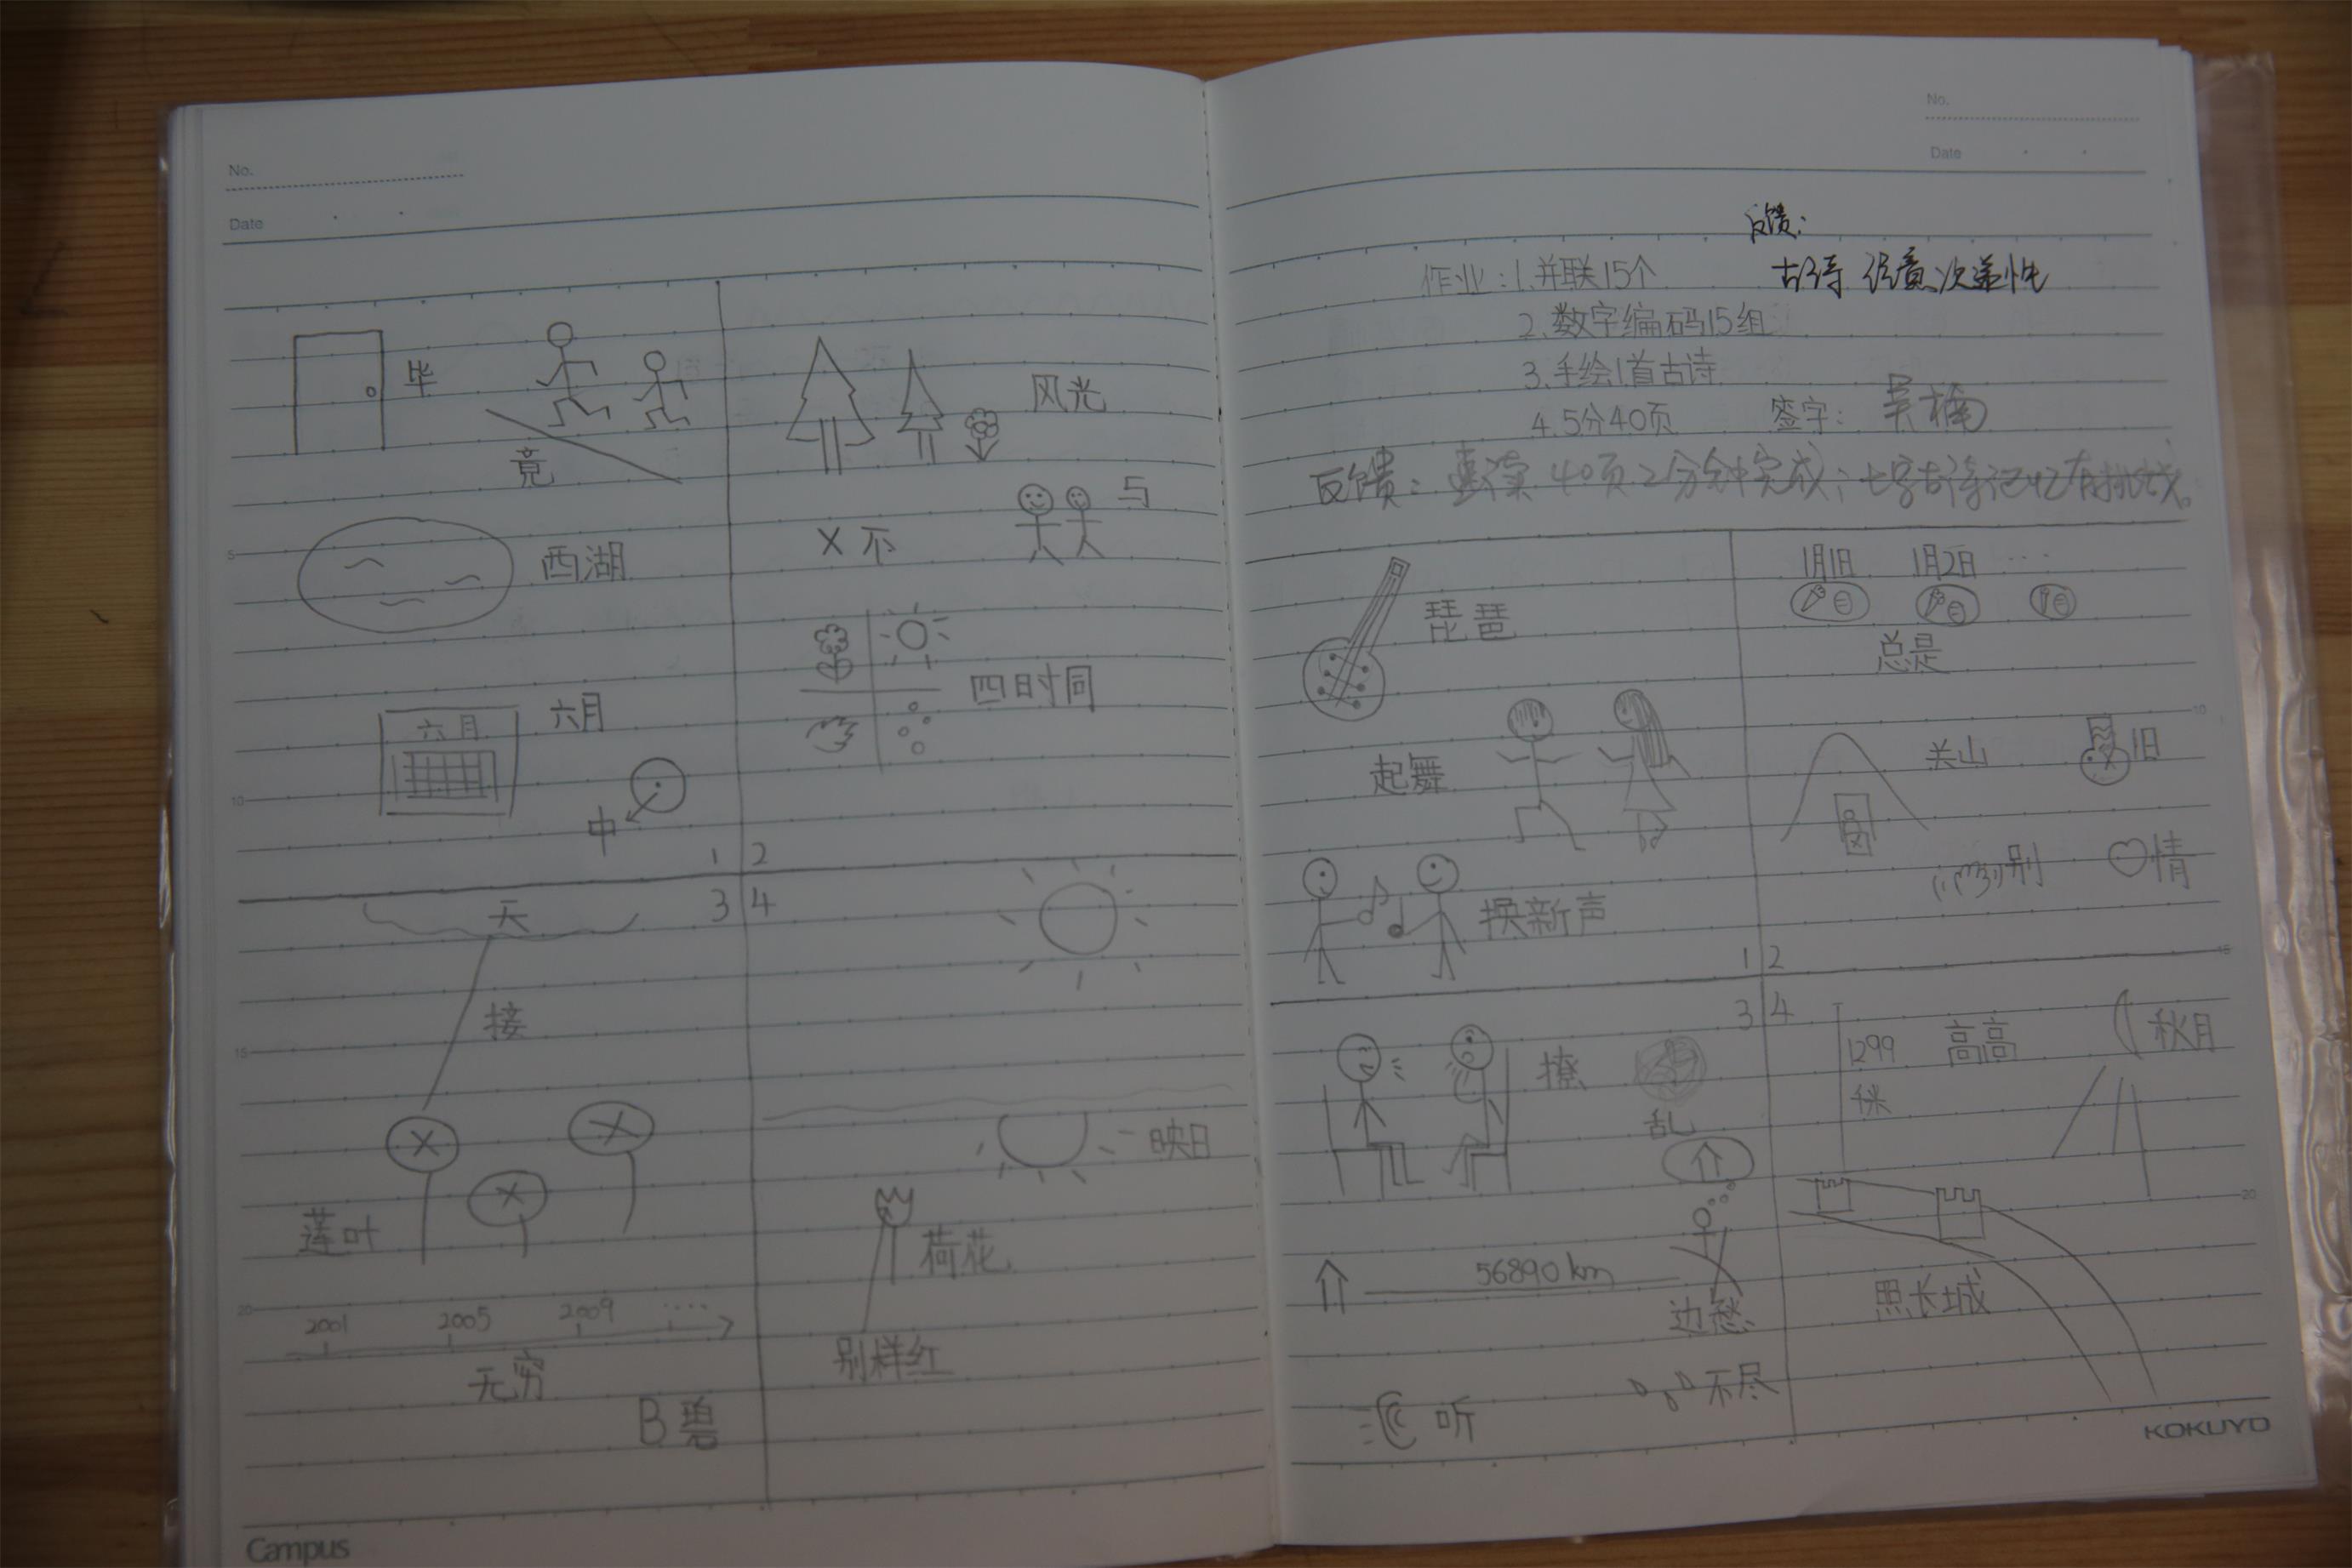 No.
Date
毕
竟
风光
西湖
X 不
与
六月
六月
中
四时同
1 2
3 4
天
接
莲叶
映日
荷花
别样红
2001 2005 2009 ....
无穷
B 碧
Campus
No.
Date
反馈:
作业:1.并联15个
古诗
2.数字编码15组
3.手绘1首古诗
4.5分40页 签字:
反馈: 40页2分钟完成;七字古诗记忆有挑战。
琵琶
1月1日 1月2日 ...
总是
起舞
关山
旧
别
情
换新声
1 2
3 4
撩
乱
1299
米
高高
秋月
56890km
边愁
照长城
听
不尽
KOKUYO
5
10
15
20
10
15
20